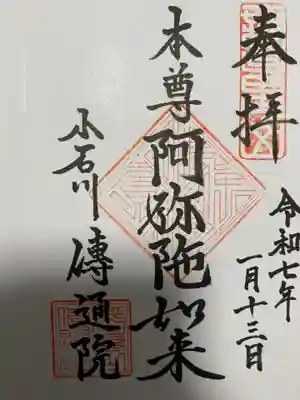 奉拝
令和七年
一月十三日
本尊阿弥陁如来
小石川
傳通院